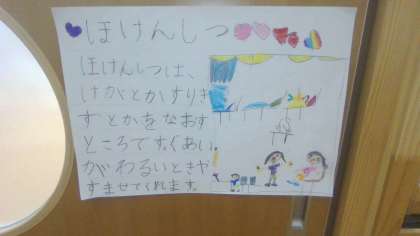 ほけんしつ
ほけんしつは、
けがとかすりき
ずとかをなおす
ところです。ぐあい
がわるいときや
すませてくれます。